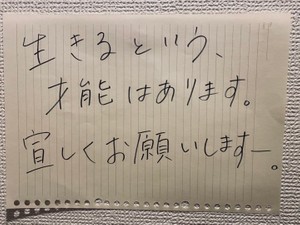 生きるという、
才能はあります。
宜しくお願いしますー。